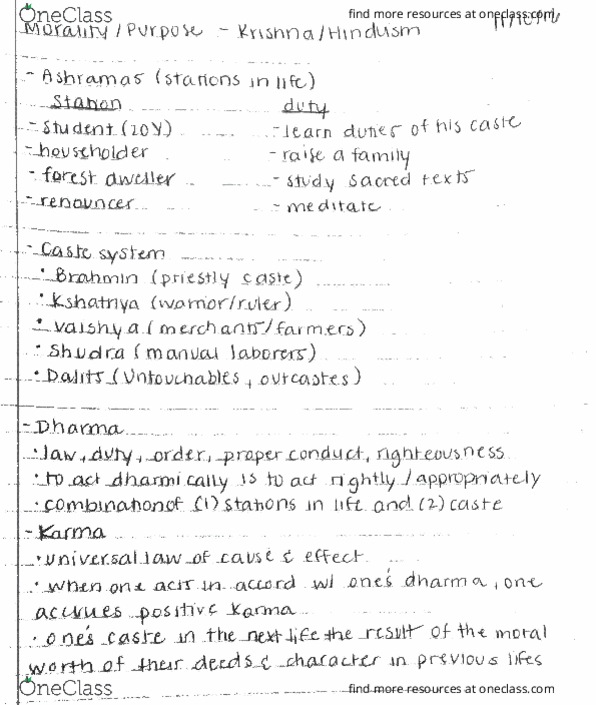 OneClass
find more resources at oneclass.com
Morality/Purpose - Krishna/Hinduism
- Ashramas (stations in life)
Station duty
- student (20Y) - learn duties of his caste
- householder - raise a family
- forest dweller - study sacred texts
- renouncer - meditate
- Caste system
• Brahmin (priestly caste)
• Kshatriya (warrior/ruler)
• Vaishya (merchants/farmers)
• Shudra (manual laborers)
• Dalits (untouchables, outcastes)
- Dharma
• law, duty, order, proper conduct, righteousness
• to act dharmically is to act rightly/appropriately
• combination of (1) stations in life and (2) caste
- Karma
• universal law of cause & effect
• when one acts in accord w/ one's dharma, one
accrues positive karma
• one's caste in the next life the result of the moral
worth of their deeds & character in previous lifes
OneClass
find more resources at oneclass.com